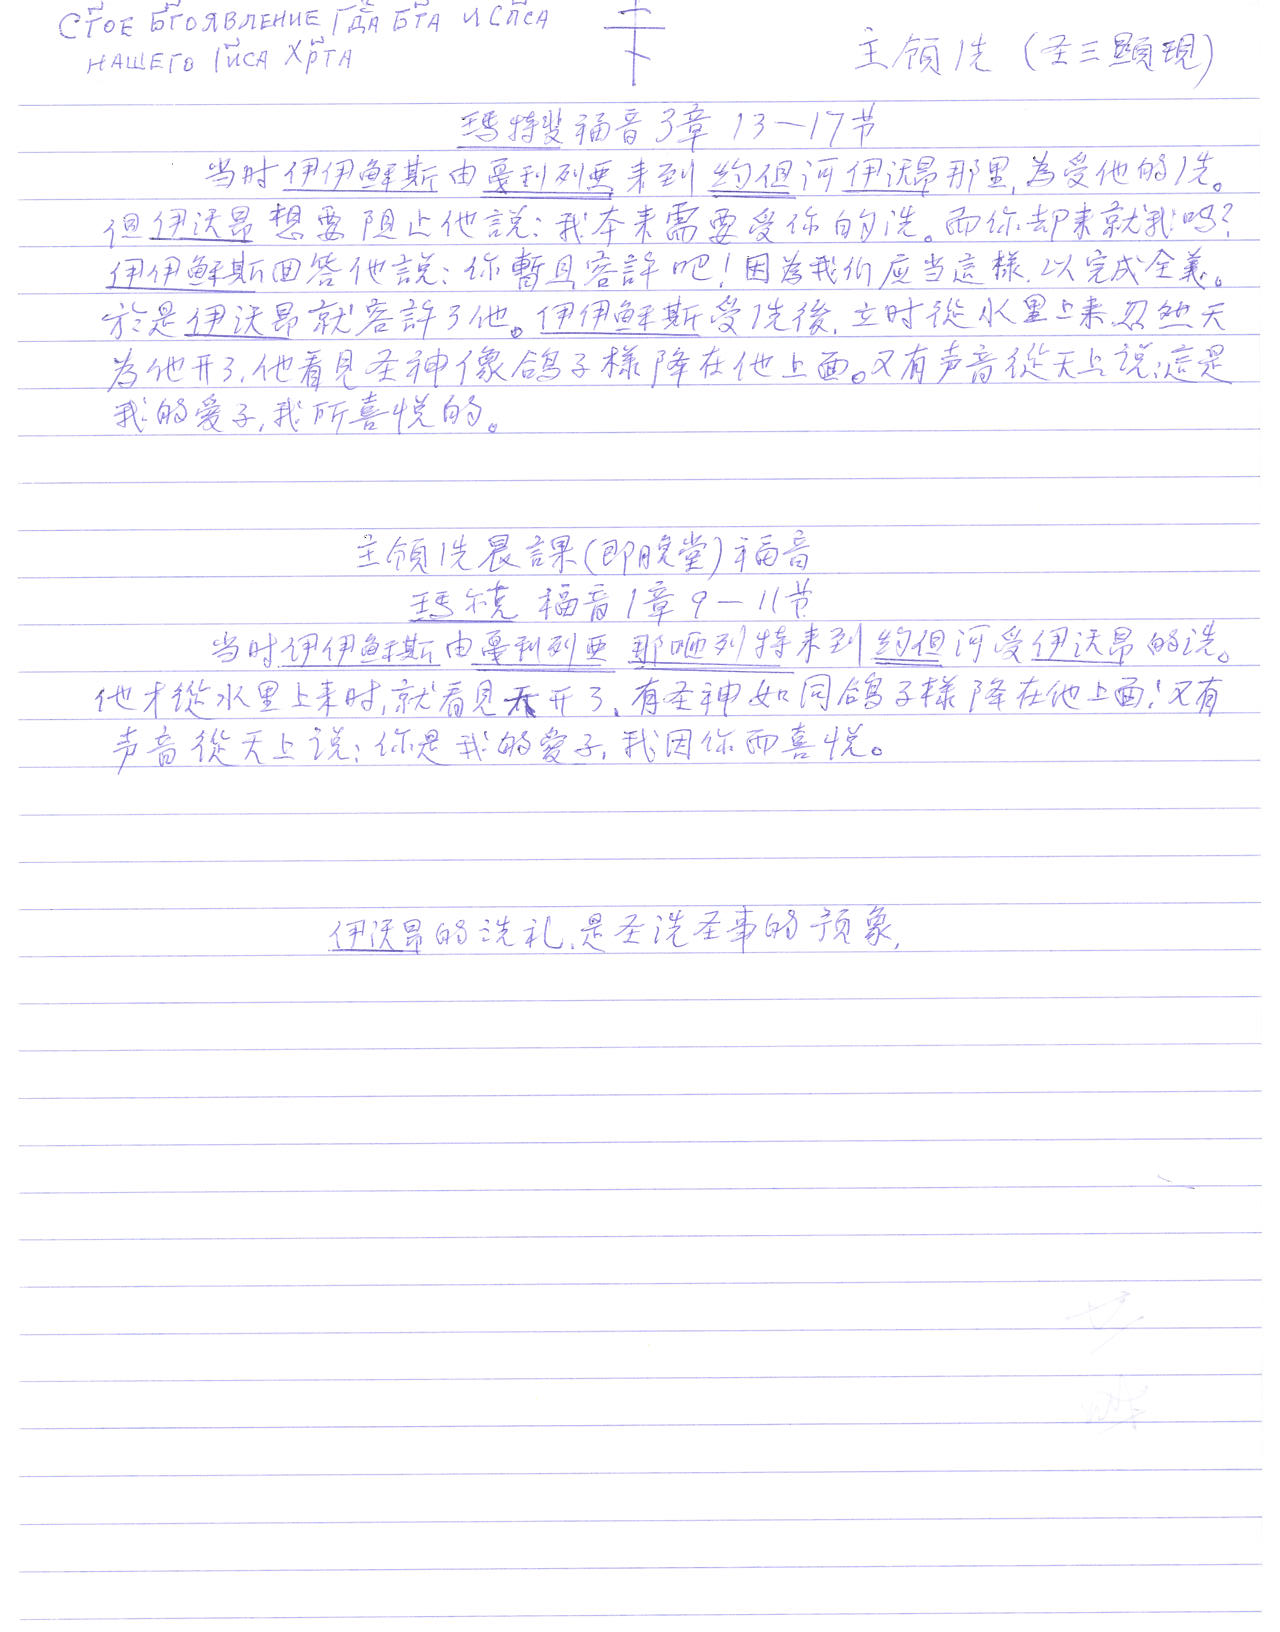 СТОЕ БГОЯВЛЕНИЕ ГДА БГА И СПСА
НАШЕГО ІИСА ХРТА
主領洗（圣三顯現）
瑪特斐福音3章13—17节
当时伊伊穌斯由戛利列亜来到約但河伊沃昂那里,為受他的洗。
但伊沃昂想要阻止他説:我本来需要受你的洗。而你却来就我吗?
伊伊穌斯回答他説:你暫且容許吧!因為我们应当這樣.以完成全義。
於是伊沃昂就容許了他。伊伊穌斯受洗後,立时從水里上来.忽然天
為他开了,他看見圣神像鴿子樣降在他上面。又有声音從天上説:這是
我的愛子,我所喜悦的。
主領洗晨課(即晚堂)福音
瑪尔克福音1章9—11节
当时伊伊穌斯由戛利列亜那咂列特来到約但河受伊沃昂的洗。
他才從水里上来时,就看見天开了、有圣神如同鴿子樣降在他上面!又有
声音從天上説:你是我的愛子,我因你而喜悦。
伊沃昂的洗礼.是圣洗圣事的預象,